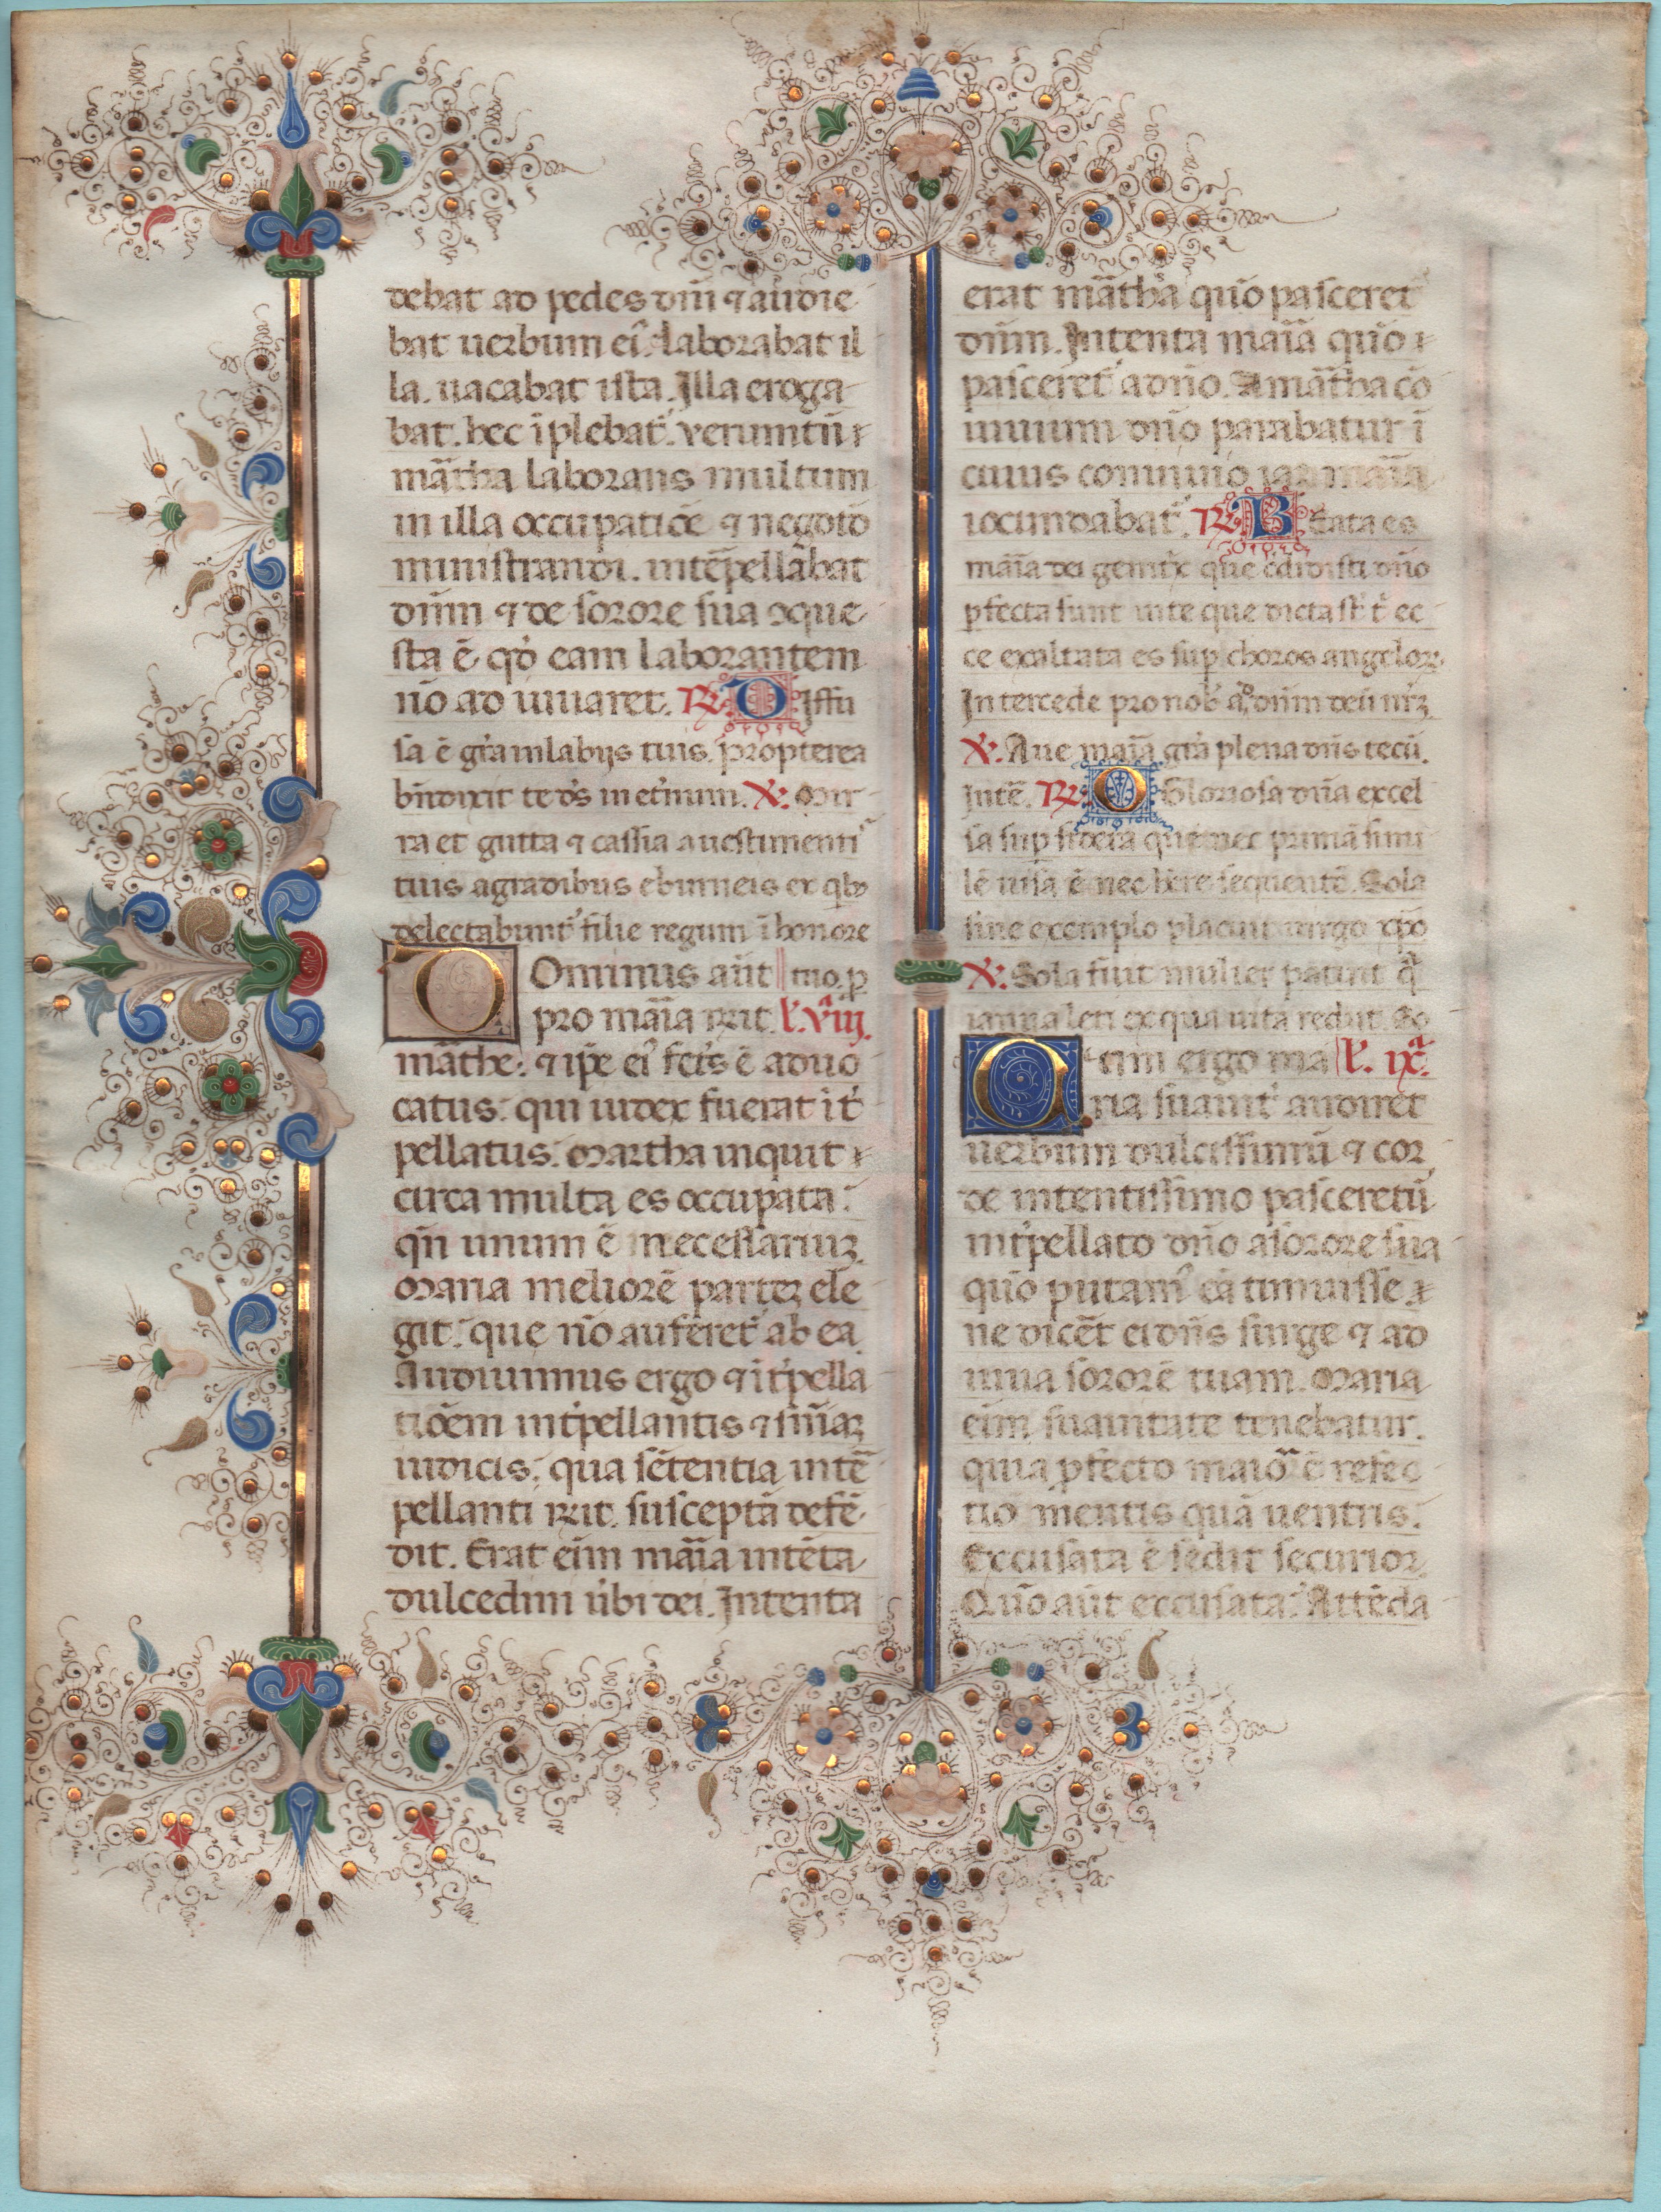 debat ad pedes dñi ⁊ audie
bat uerbum ei᷒. laborabat il
la. uacabat ista. Illa eroga
bat. hec ĩplebat᷑. verumtñ
mãrtha laborans multum
in illa occupatiõe ⁊ negotio
ministrandi. intẽpellabat
dñm ⁊ de sorore sua ↄque
sta ẽ qđ eam laborantem
nõ ad iuuaret. ℞. Diffu
sa ẽ gr̃a inlabijs tuis. propterea
bñdixit te ds̃ inet̃num. ℣. Mir
ra et gutta ⁊ cassia auestimenti᷒
tuis agradibus eburneis ex qb᷒
delectabunt᷑ filie regum ĩ honore
Ominus aũt tuo. ꝓ
pro maĩa rñt. L. viij.ᵃ
marthe: ⁊ ip̃e ei᷒ fcs̃ ẽ aduo
catus: qui iudex fuerat ĩt̃
pellatus: Martha inquit
circa multa es occupata:
qñ unum ẽ necessariuꝫ
Maria meliorẽ parteꝫ ele
git: que nõ auferet᷑ ab ea.
Audiuimus ergo ⁊ ĩt̃pella
tiõem int̃pellantis ⁊ sñiaꝫ
iudicis: qua sẽtentia intẽ
pellanti rñt. susceptã defẽ
dit. Erat eĩm maĩa intẽta
dulcedini ũbi dei. Intenta
erat mãtha quõ pasceret
dñm. Intenta maĩa quõ
pasceret᷑ a dño. A mãtha cõ
uiuium dño parabatur ĩ
cuius conuiuio iam maĩa
iocundabat᷑. ℞. Beata es
maĩa dei genit̃x que credidisti dño
ꝑfecta sunt inte que dicta st̃ t̃ ec
ce exaltata es suꝑ choros angeloꝝ.
Intercede pro nob᷒ ad dñm deũ nr̃ꝫ
℣. Aue maĩa gr̃a plena dñs tecũ.
Intẽ. ℞. O Gloriosa dña excel
sa suꝑ sidera que nec primã simi
lẽ uisa ẽ nec hr̃e sequentẽ. Sola
sine exemplo placuit uirgo xp̃o
℣. Sola fuit mulier patuit q̃
ianua leti ex qua uita rediit. So
tim ergo ma L. ix.ᵃ
ria suauit᷑ audiret
uerbum dulcissimũ ⁊ cor
de intentissimo pasceret᷑
int̃pellato dño asorore sua
quõ putam᷒ eã timuisse
ne dicẽt ei dñs surge ⁊ ad
iuua sororẽ tuam. Maria
eĩm suauitate tenebatur.
quia ꝓfecto maior ẽ refec
tio mentis quã uentris:
Excusata ẽ sedit securior
Quõ aũt excusata: Attẽda